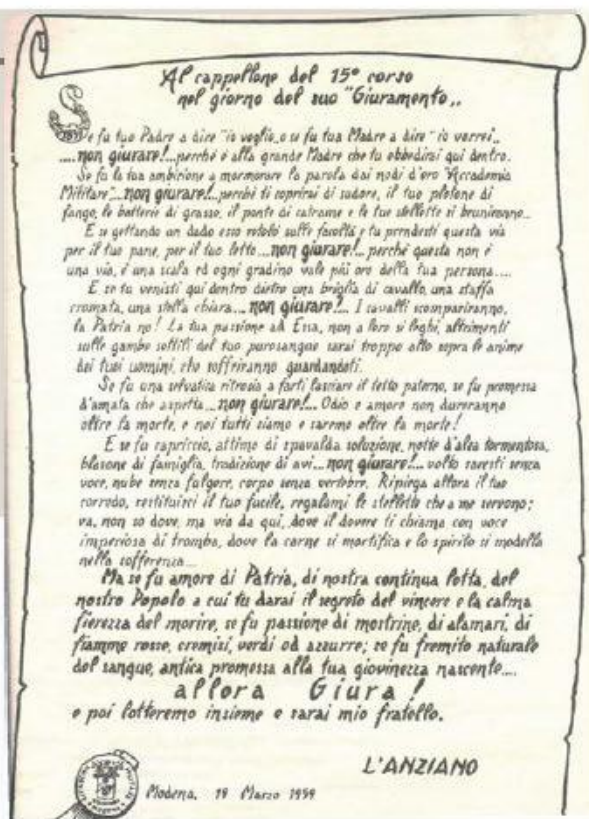 Al cappellone del 15° corso
nel giorno del suo "Giuramento„
Se fu tuo Padre a dire "io voglio„ o se fu tua Madre a dire "io vorrei„
....non giurare!...perché è alla grande Madre che tu obbedirai qui dentro.
Se fu la tua ambizione a mormorare la parola dai nodi d'oro "Accademia
Militare"...non giurare!...perché ti coprirai di sudore, il tuo plotone di
fango, le batterie di grasso, il ponte di catrame e le tue stellette si bruniranno...
E se gettando un dado esso rotolò sulle facoltà e tu prendesti questa via
per il tuo pane, per il tuo letto...non giurare!...perché questa non è
una via, è una scala ed ogni gradino vale più oro della tua persona....
E se tu venisti qui dentro dietro una briglia di cavallo, una staffa
cromata, una stella chiara....non giurare!... I cavalli scompariranno,
la Patria no! La tua passione ad Essa, non a loro si leghi, altrimenti
sulle gambe sottili del tuo purosangue sarai troppo alto sopra le anime
dei tuoi uomini, che soffriranno guardandoti.
Se fu una selvatica ritrosia a farti lasciare il tetto paterno, se fu promessa
d'amata che aspetta...non giurare!... Odio e amore non dureranno
oltre la morte, e noi tutti siamo e saremo oltre la morte!
E se fu capriccio, attimo di spavalda soluzione, notte d'alea tormentosa,
blasone di famiglia, tradizione di avi...non giurare!... volto saresti senza
voce, nube senza fulgore, corpo senza vertebre. Ripiega allora il tuo
corredo, restituisci il tuo fucile, regalami le stellette che a me servono;
va, non so dove, ma via da qui, dove il dovere ti chiama con voce
imperiosa di tromba, dove la carne si mortifica e lo spirito si modella
nella sofferenza...
Ma se fu amore di Patria, di nostra continua lotta, del
nostro Popolo a cui tu darai il segreto del vincere e la calma
fierezza del morire, se fu passione di mostrine, di alamari, di
fiamme rosse, cremisi, verdi od azzurre; se fu fremito naturale
del sangue, antica promessa alla tua giovinezza nascente....
allora Giura!
e poi lotteremo insieme e sarai mio fratello.
L'ANZIANO
Modena, 19 Marzo 1959